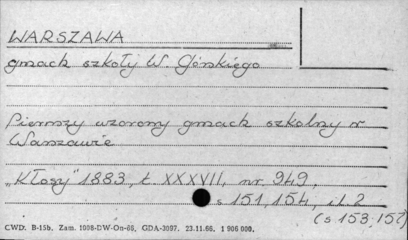 WARSZAWA
gmach szkoły W. Górskiego
Pierwszy wzorowy gmach szkolny w
Warszawie
„Kłosy" 1883, t. XXXVII, nr. 949,
s 151, 154, il. 2
(s 153, 15?)
CWD. B-15b. Zam. 1088-DW-On-66, GDA-3097. 23.11.66. 1 906 000.